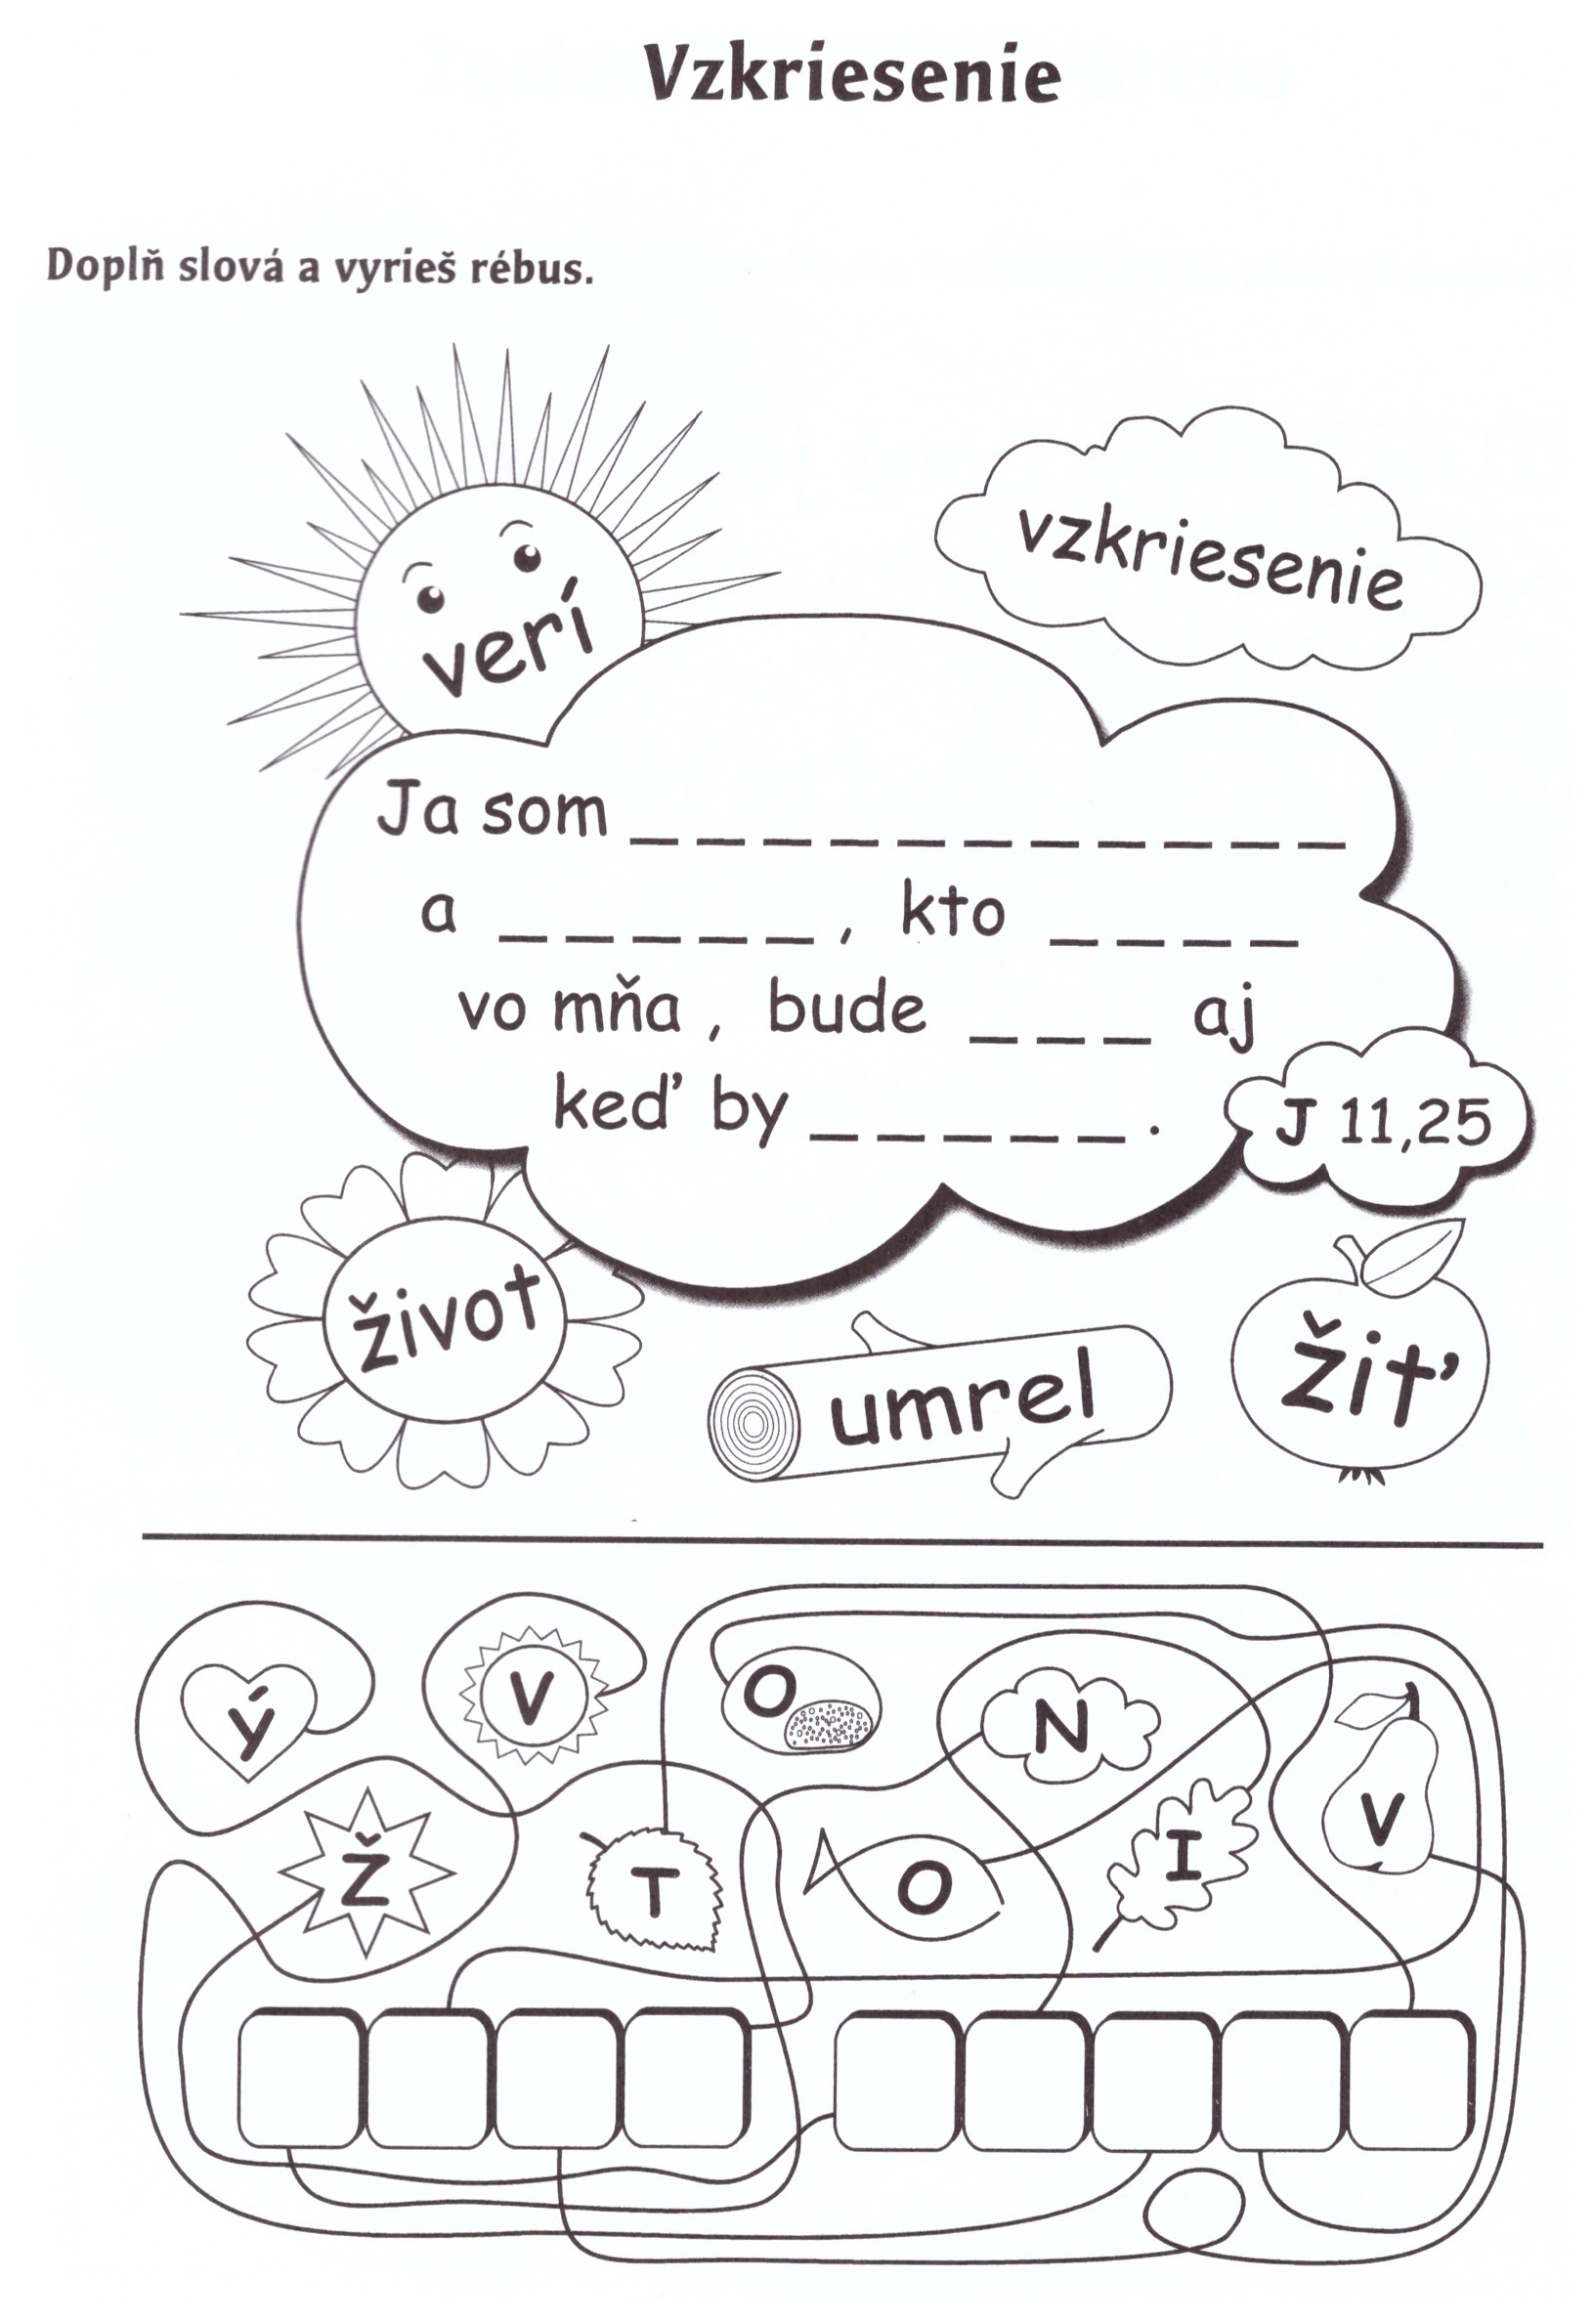 Vzkriesenie
Doplň slová a vyrieš rébus.
verí
vzkriesenie
Ja som _ _ _ _ _ _ _ _ _ _ _
a _ _ _ _ _ , kto _ _ _ _
vo mňa , bude _ _ _ aj
keď by _ _ _ _ _ .
J 11,25
život
umrel
žiť
ý
V
O
N
V
Ž
T
O
I